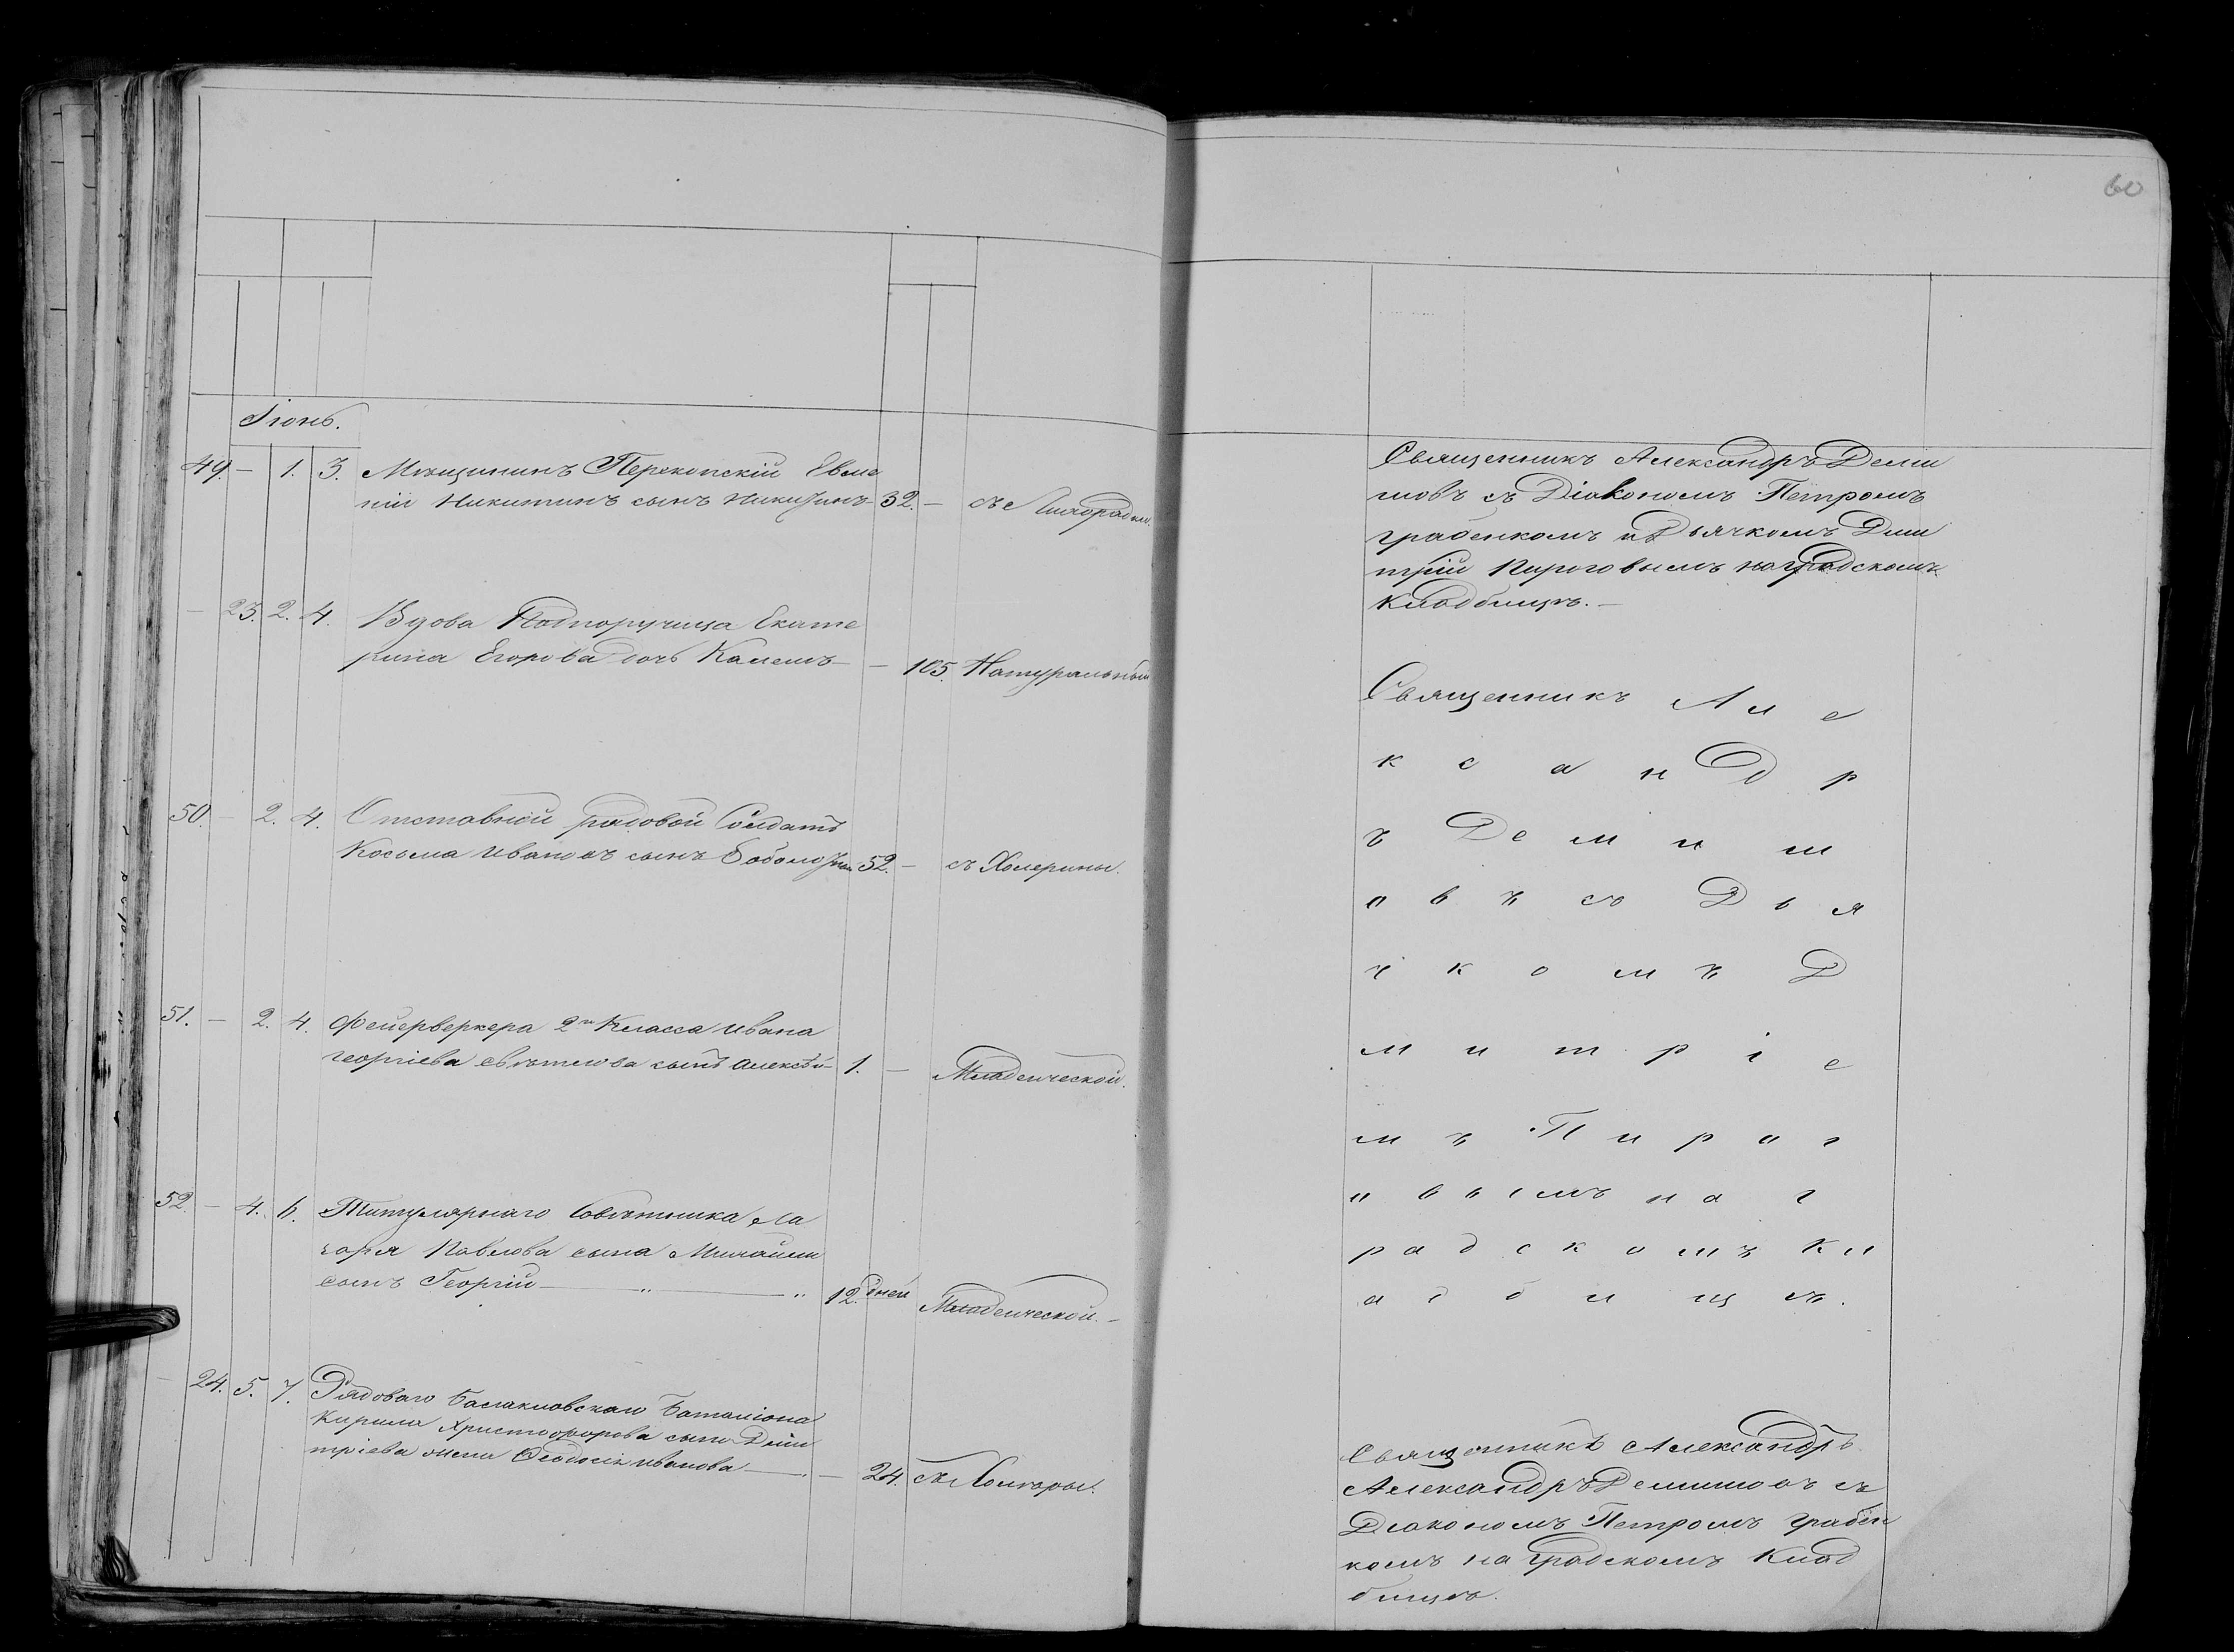 60
Іюнь.
49. — 1. 3. Мѣщининъ Перекопскій Евме
ній Никитинъ сынъ Никитинъ — 32. — съ Лихорадки.
— 23. 2. 4. Вдова Подпоручица Екате
рина Егорова дочь — — 105. Натуральный
50. — 2. 4. Отставной рядовой Солдатъ
Косьма Ивановъ сынъ 52. — съ Холерины.
51. — 2. 4. Фейерверкера 2го Класса Ивана
Георгіева Свѣтлова сынъ Алексѣй — 1. — Младенческой.
52. — 4. 6. Титулярнаго Совѣтника Ла
заря Павлова сына Михайли
сынъ Георгій — „ — „ 12. дней Младенческой. —
— 24. 5. 7. Рядоваго Балаклавскаго Баталіона
Кирила Христофорова сына Дми
тріева жена Ѳеодосія Иванова — — 24. съ Холеры.
Священникъ Александръ Деми
шовъ съ Діакономъ Петромъ
Грабенкомъ и Дьячкомъ Дми
трій Пироговымъ на градскомъ
Кладбищѣ. —
Священникъ А л е
к с а н д р
ъ Д е м и ш
о в ъ съ Д ь я
ч к о м ъ Д
м и т р і е
м ъ П и р о г
о в ы мъ н а г
р а д с к о м ъ К л
а д б и щ ѣ.
Священникъ Александръ
Александръ Демишовъ съ
Діакономъ Петромъ Грабен
комъ на градскомъ Клад
бищѣ.